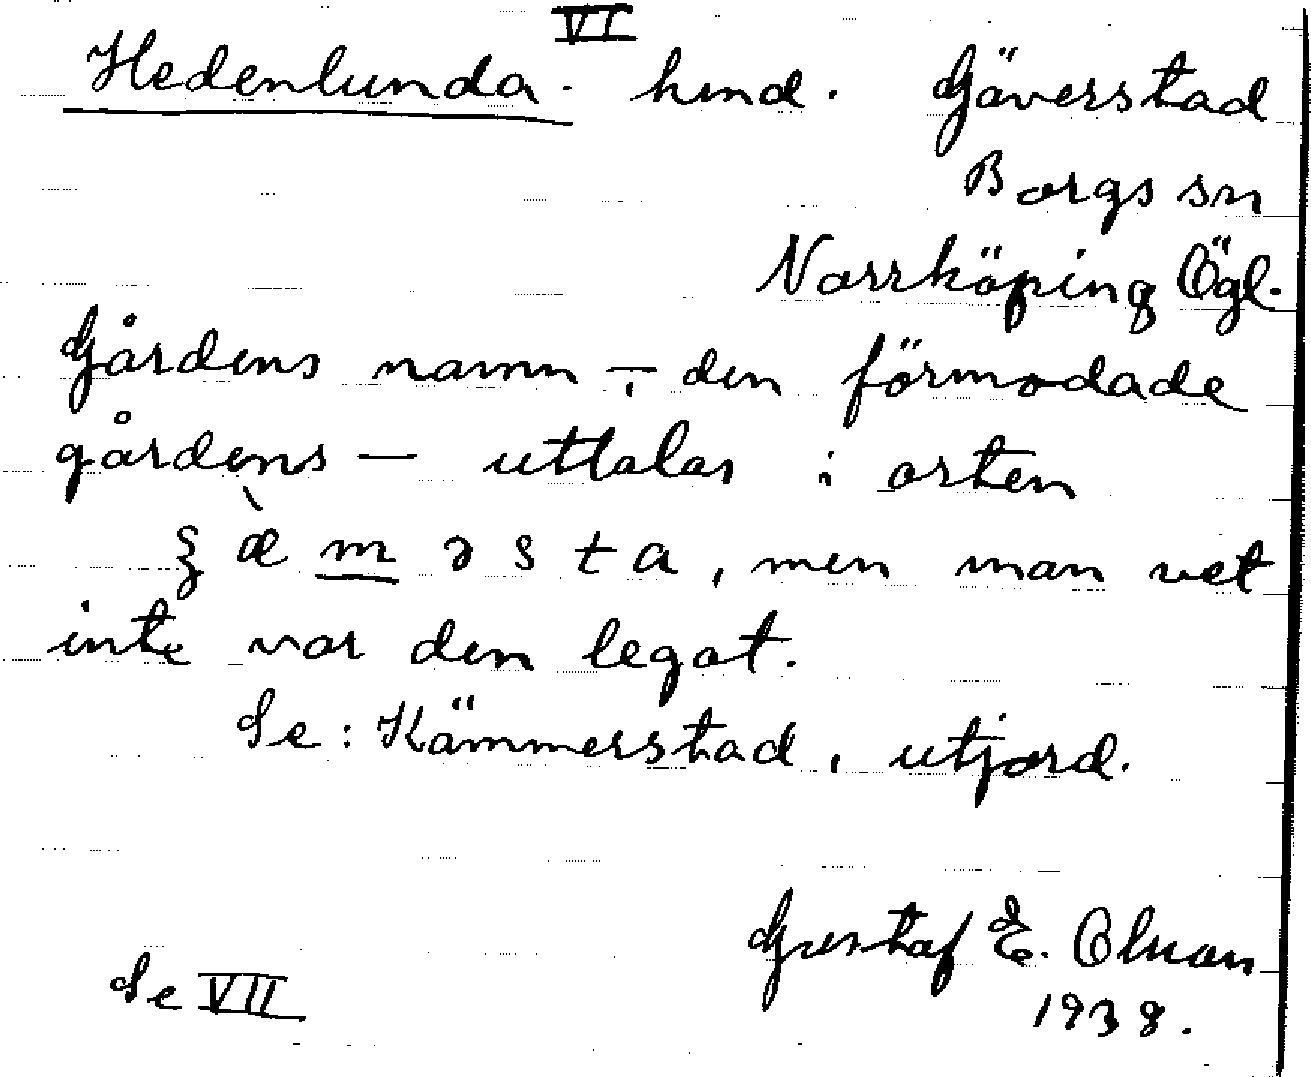 VI
Hedenlunda. hmd. Gäverstad
Borgs sn
Norrköping Ögl.
Gårdens namn – den förmodade
gårdens — uttalas i orten
ȝ æ̀ m ə s t a, men man vet
inte var den legat.
Se: Kämmerstad, utjord.
Gustaf E. Olsson
1938.
Se VII